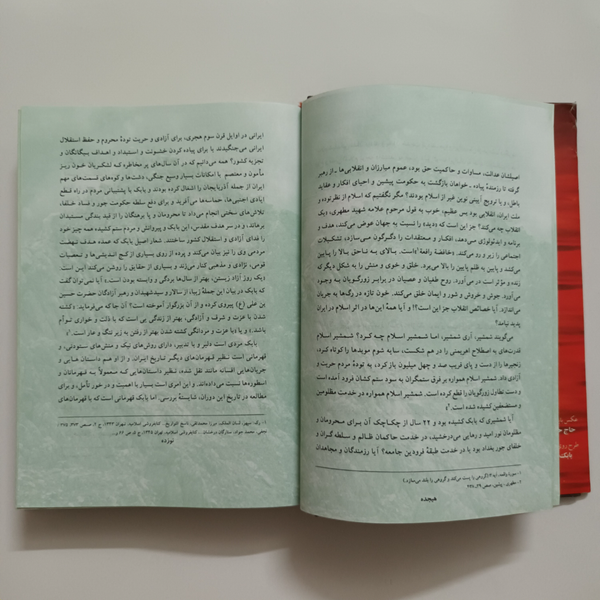 اصیلشان عدالت، مساوات و حاکمیت حق بود، عموم مبارزان و انقلابی‌ها ـ از رهبر
گرفته تا رزمندهٔ پیاده ـ خواهان بازگشت به حکومت پیشین و احیای افکار و عقاید
باطل، و یا ترویج آیینی نوین غیر از اسلام بودند؟ مگر نگفتیم که اسلام از نظر توده و
ملت ایران، انقلابی بود بس عظیم، خوب به قول مرحوم علامه شهید مطهری، «یک
انقلاب چه می‌کند؟ جز این است که دید را نسبت به جهان عوض می‌کند، هدف و
برنامه و ایدئولوژی می‌دهد، افکار و معتقدات را دگرگون می‌سازد، تشکیلات
اجتماعی را زیر و رو می‌کند. «خافضة رافعة» است. بالای به ناحق بالا را پایین
می‌کشد و پایین به ظلم پایین را بالا می‌برد. خلق و خوی و منش را به شکل دیگر که
زنده و مؤثر است در می‌آورد. روح طغیان و عصیان در برابر زورگویان به وجود
می‌آورد. جوش و خروش و شور و ایمان خلق می‌کند. خون تازه در رگ‌ها به جریان
می‌اندازد. آیا خصائص انقلاب جز این است؟! و آیا همهٔ این‌ها در اثر اسلام در ایران
پدید نیامد؟
می‌گویند شمشیر، آری شمشیر، اما شمشیر اسلام چه کرد؟ شمشیر اسلام
قدرت‌های به اصطلاح اهریمنی را در هم شکست، سایه شوم موبدها را کوتاه کرد،
زنجیرها را از دست و پای قریب صد و چهل میلیون باز کرد، به تودهٔ مردم حریت و
آزادی داد. شمشیر اسلام همواره بر فرق ستمگران به سود ستم کشان فرود آمده است
و دست تطاول زورگویان را قطع کرده است. شمشیر اسلام همواره در خدمت مظلومین
و مستضعفین کشیده شده است.»
آیا شمشیری که بابک کشیده بود و ۲۲ سال از چکاچک آن برای محرومان و
مظلومان نور امید و رهایی می‌درخشید، در خدمت حاکمان ظالم و سلطه گران و
خلفای جور بغداد بود یا در خدمت طبقهٔ فرودین جامعه؟ آیا رزمندگان و مجاهدان
هیجده
ایرانی در اوایل قرن سوم هجری، برای آزادی و حریت تودهٔ محروم و حفظ استقلال
ایرانی می‌جنگیدند یا برای پیاده کردن خشونت و استبداد و اهداف بیگانگان و
تجزیه کشور؟ همه می‌دانیم که در آن سال‌های پر مخاطره که لشکریان خون ریز
مأمون و معتصم با امکانات بسیار وسیع جنگی، دشت‌ها و کوه‌های قسمت‌های مهم
ایران از جمله آذربایجان را اشغال کرده بودند و بابک با پشتیبانی مردم در راه قطع
ایادی اجنبی‌ها، حماسه‌ها می‌آفرید و برای دفع سلطه حکومت جور و فساد خلفا،
تلاش‌های سختی انجام می‌داد تا محرومان و پا برهنگان را از قید بندگی مستبدان
برهاند، و در سر هدف مقدس، این بابک و پیروانش و مردم ستم کشیده همه چیز خود
را فدای آزادی و استقلال کشور ساختند. شعار اصیل بابک که عمده هدف نهضت
مردمی وی را نیز بیان می‌کند و پرده از روی بسیاری از کج اندیشی‌ها و تعصبات
قومی، نژادی و مذهبی کنار می‌زند و بسیاری از حقایق را روشن می‌کند این است:
یک روز آزاد زیستن، بهتر از سال‌ها بردگی و وابسته بودن است.» آیا نمی‌توان گفت
که بابک در بیان این جملهٔ زیبا، از سالار و سید شهیدان و رهبر آزادگان حضرت حسین
بن علی (ع) پیروی کرده و از آن بزرگوار آموخته است؟ آن جا که می‌فرماید: «کشته
شدن با عزت و شرف و آزادگی، بهتر از زندگی یی است که با ذلت و خواری توأم
باشد.» و یا «با عزت و مردانگی کشته شدن بهتر از رفتن به زیر ننگ و عار است.»
بابک مردی است دلیر و با تدبیر، دارای روش‌های نیک و منش‌های ستودنی، و
قهرمانی است نظیر قهرمان‌های دیگر تاریخ ایران. و از او هم داستان‌هایی و
جریان‌هایی افسانه مانند نقل شده، نظیر داستان‌هایی که معمولاً به قهرمان‌های
اسطوره‌ها نسبت می‌داده‌اند. و این امری است بسیار با اهمیت و در خور تأمل، و برای
مطالعه در تاریخ این دوران، شایستهٔ بررسی. اما بابک قهرمانی است که با قهرمان‌های
نوزده
بابک